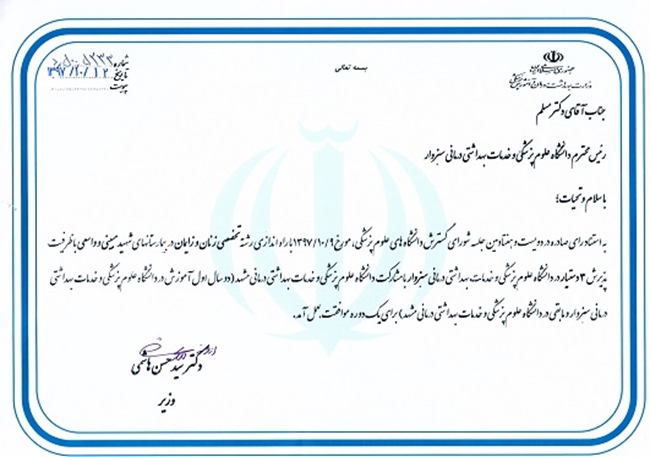 بسمه تعالی
جمهوری اسلامی ایران
وزارت بهداشت، درمان و آموزش پزشکی
شماره
تاریخ ۱۳۹۷/۱۰/۱۲
پیوست
جناب آقای دکتر مسلم
رئیس محترم دانشگاه علوم پزشکی و خدمات بهداشتی درمانی سبزوار
با سلام و تحیات؛
به استناد رای صادره در دویست و هفتادمین جلسه شورای گسترش دانشگاه های علوم پزشکی، مورخ ۱۳۹۷/۱۰/۹ با راه اندازی رشته تخصصی زنان و زایمان در بیمارستانهای شهید مبینی و واسعی با ظرفیت
پذیرش ۳ دستیار در دانشگاه علوم پزشکی و خدمات بهداشتی درمانی سبزوار با مشارکت دانشگاه علوم پزشکی و خدمات بهداشتی درمانی مشهد (دو سال اول آموزش در دانشگاه علوم پزشکی و خدمات بهداشتی
درمانی سبزوار و مابقی در دانشگاه علوم پزشکی و خدمات بهداشتی درمانی مشهد) برای یک دوره موافقت بعمل آمد.
دکتر سید حسن هاشمی
وزیر